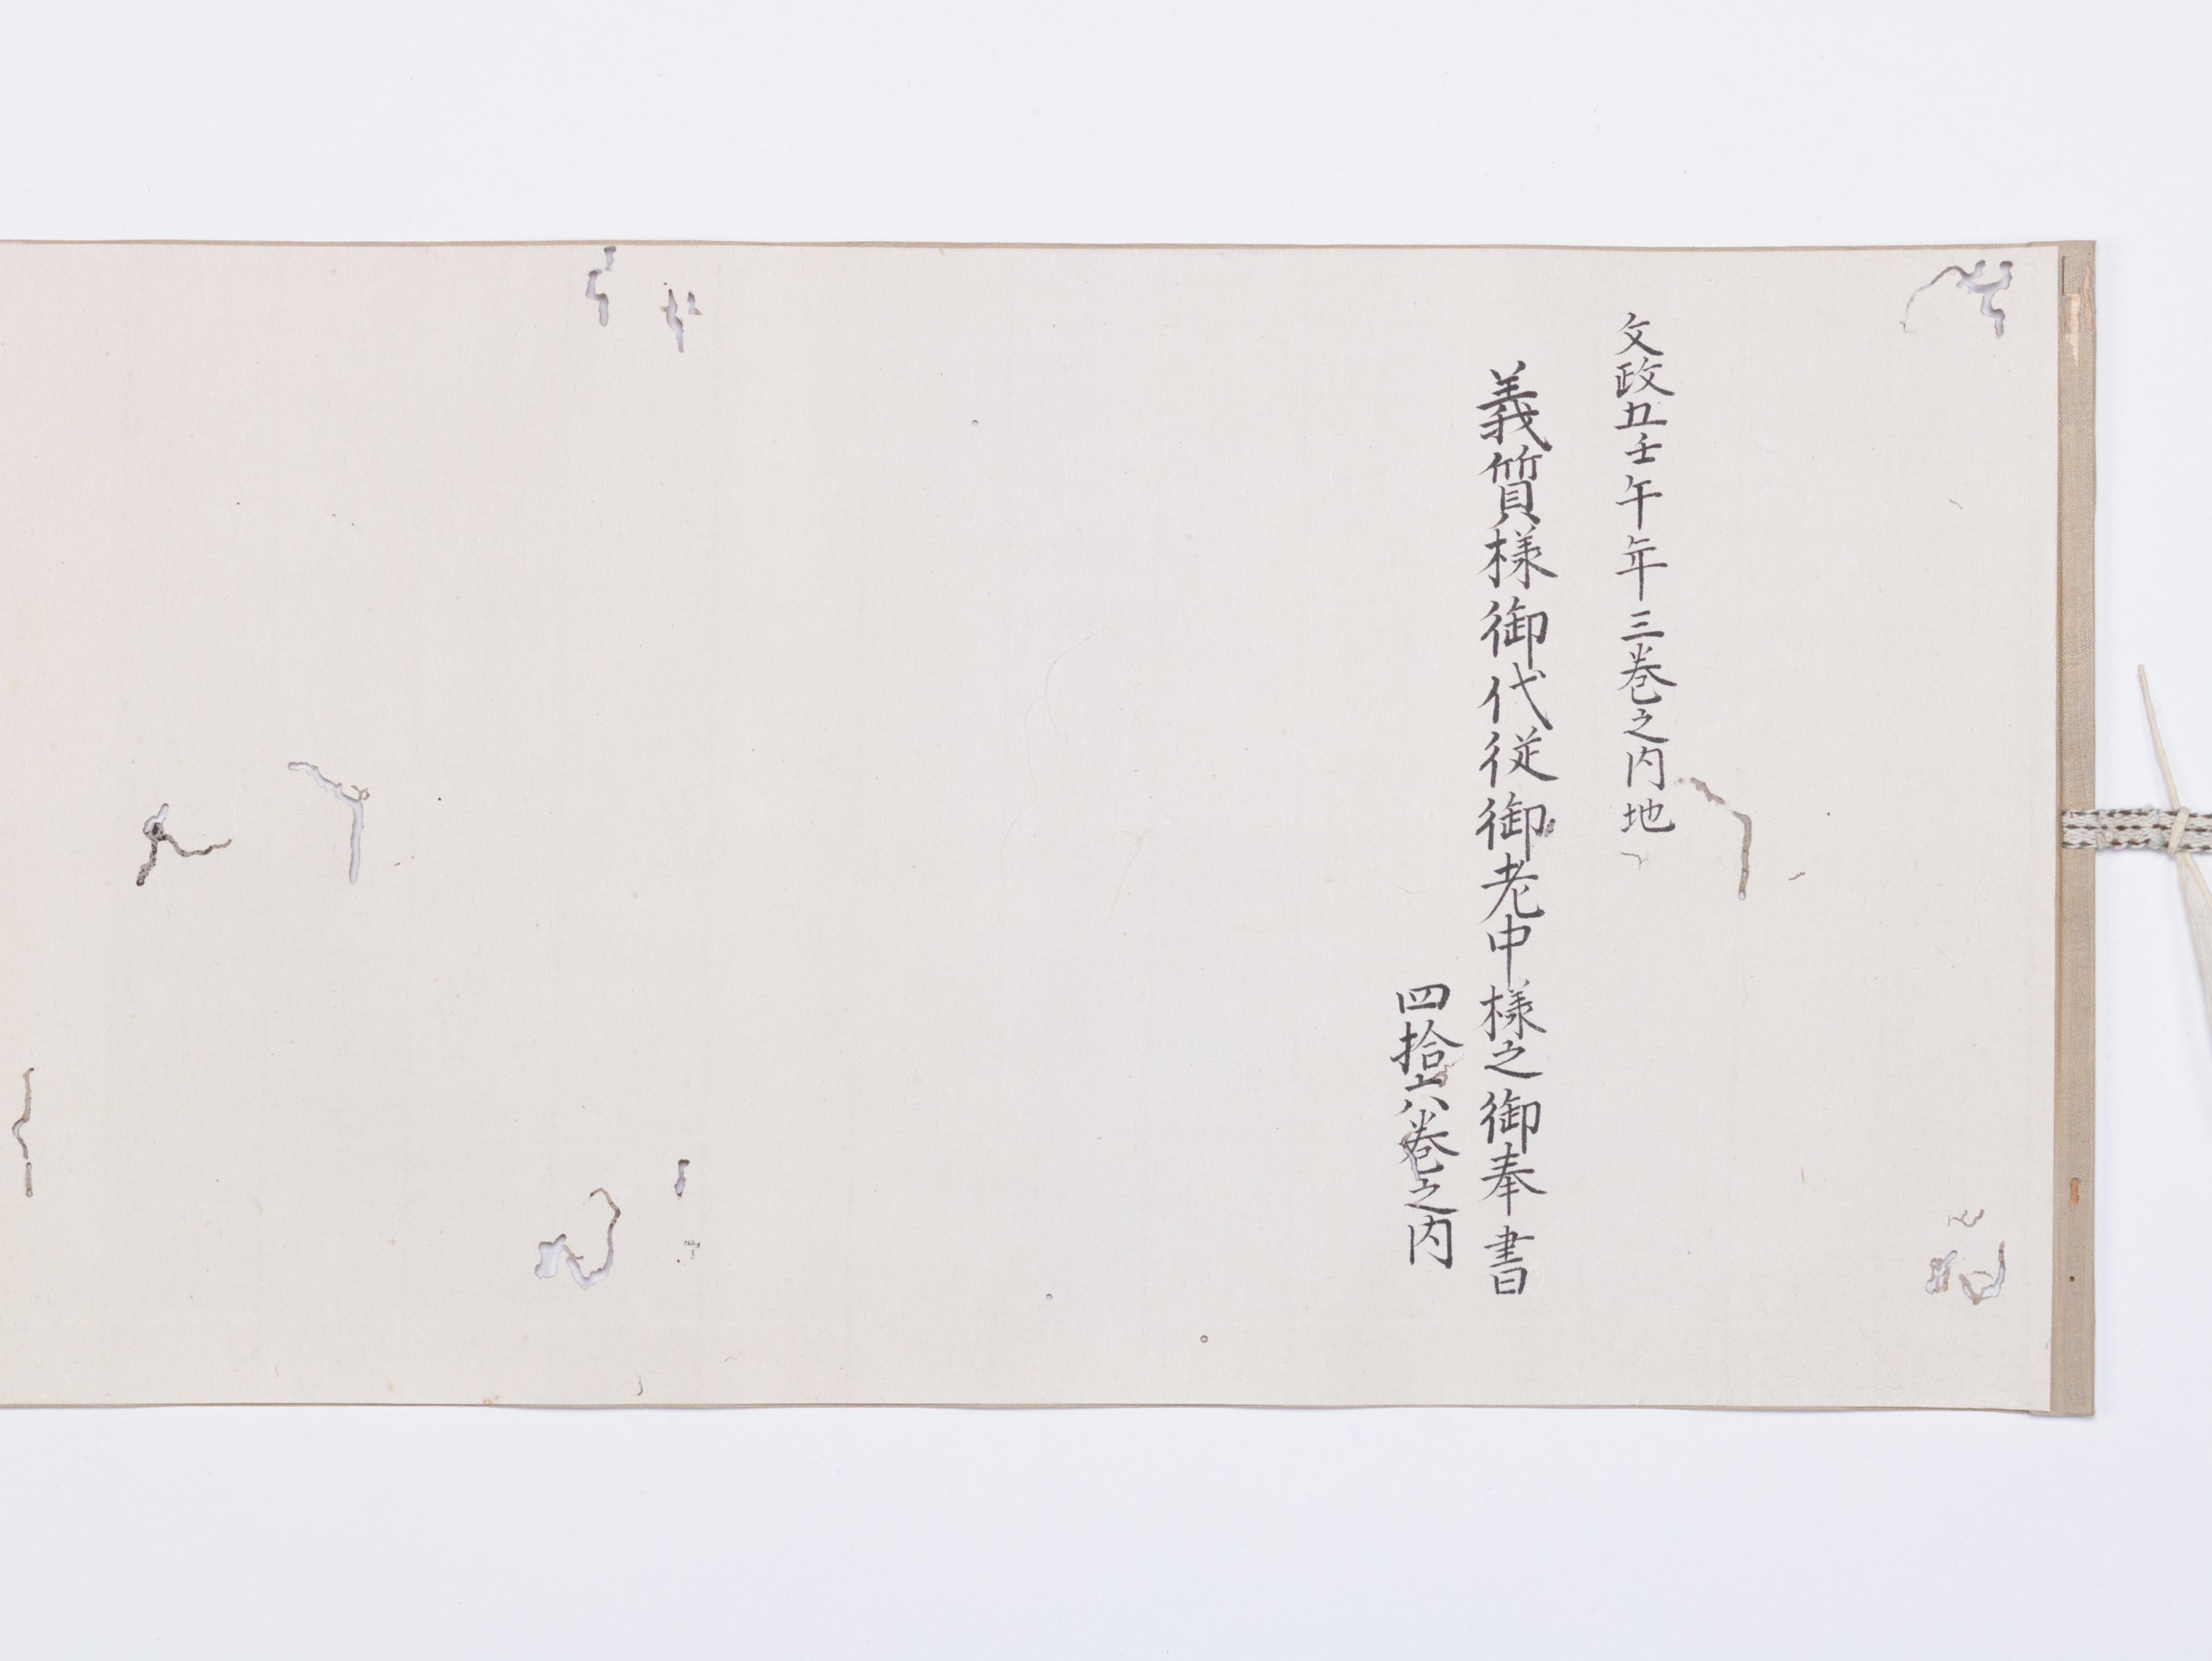 文政五壬午年三巻之内地
義質様御代従御老中様之御奉書
四拾六巻之内